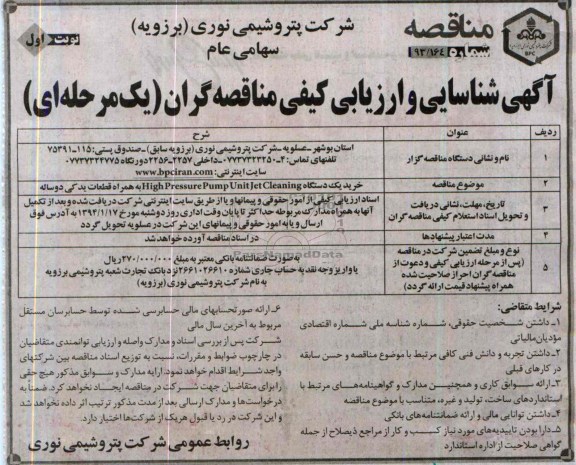 مناقصه
شماره ۹۳/۱۶۴
شرکت پتروشیمی نوری (برزویه)
سهامی عام
نوبت اول
BPC
آگهی شناسایی و ارزیابی کیفی مناقصه گران (یک مرحله ای)
ردیف عنوان شرح
۱ نام و نشانی دستگاه مناقصه گزار
استان بوشهر - عسلویه - شرکت پتروشیمی نوری (برزویه سابق) - صندوق پستی: ۱۱۵-۷۵۳۹۱
تلفنهای تماس: ۴-۰۷۷۳۷۳۲۳۲۵۰ - داخلی ۲۲۵۷-۲۲۵۶ دورنگاه ۰۷۷۳۷۳۲۲۷۷۵
سایت اینترنتی: www.bpciran.com
۲ موضوع مناقصه خرید یک دستگاه High Pressure Pump Unit Jet Cleaning به همراه قطعات یدکی دوساله
۳ تاریخ، مهلت، نشانی دریافت
و تحویل اسناد استعلام کیفی مناقصه گران
اسناد ارزیابی کیفی از امور حقوقی و پیمانها و یا از طریق سایت اینترنتی شرکت دریافت شده و بعد از تکمیل
آنها به همراه مدارک مربوطه حداکثر تا پایان وقت اداری روز دوشنبه مورخ ۱۳۹۴/۱/۱۷ به آدرس فوق
ارسال و یا به امور حقوقی و پیمانهای این شرکت در عسلویه تحویل گردد
۴ مدت اعتبار پیشنهادها در اسناد مناقصه آورده خواهد شد
۵ نوع و مبلغ تضمین شرکت در مناقصه
(پس از مرحله ارزیابی کیفی و دعوت از
مناقصه گران احراز صلاحیت شده
همراه پیشنهاد قیمت ارائه گردد)
به صورت ضمانتنامه بانکی معتبر به مبلغ ۲۷۰/۰۰۰/۰۰۰ ریال
یا واریز وجه نقد به حساب جاری شماره ۲۶۶۱۰۲۶۶۱۰ نزد بانک تجارت شعبه پتروشیمی برزویه
به نام شرکت پتروشیمی نوری (برزویه)
شرایط متقاضی:
۱- داشتن شخصیت حقوقی، شماره شناسه ملی شماره اقتصادی
مؤدیان مالیاتی
۲- داشتن تجربه و دانش فنی کافی مرتبط با موضوع مناقصه و حسن سابقه
در کارهای قبلی
۳- ارائه سوابق کاری و همچنین مدارک و گواهینامه های مرتبط با
استانداردهای ساخت، تولید و غیره، متناسب با موضوع مناقصه
۴- داشتن توانایی مالی و ارائه ضمانتنامه های بانکی
۵- دارا بودن تاییدیه های مورد نیاز کسب و کار از مراجع ذیصلاح از جمله
گواهی صلاحیت از اداره استاندارد
۶- ارائه صورتحسابهای مالی حسابرسی شده توسط حسابرسان مستقل
مربوط به آخرین سال مالی
شرکت پس از بررسی اسناد و مدارک واصله و ارزیابی توانمندی متقاضیان
در چارچوب ضوابط و مقررات، نسبت به توزیع اسناد مناقصه بین شرکتهای
واجد شرایط اقدام خواهد نمود. ارایه مدارک و سوابق مذکور هیچ حقی
را برای متقاضیان جهت شرکت در مناقصه ایجاد نخواهد کرد. ضمناً به
درخواست ها و مدارک ارسالی بعد از مدت مذکور ترتیب اثر داده نخواهد شد
و این شرکت در رد یا قبول هریک از شرکت ها اختیار دارد.
روابط عمومی شرکت پتروشیمی نوری